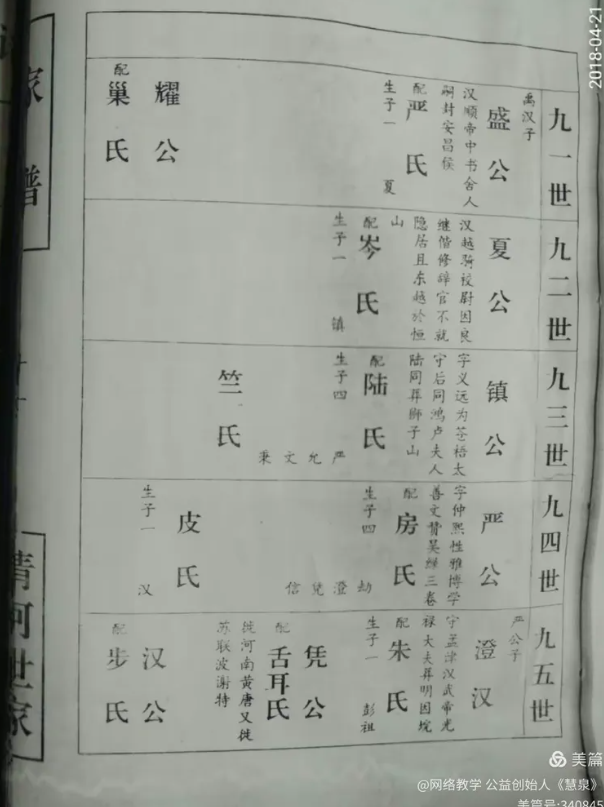 九一世
禹汉子
盛公
汉顺帝中书舍人
嗣封安昌侯
配
严氏
生子一
夏
耀公
配
巢氏
九二世
夏公
汉越骑校尉因良
继偕修辞官不就
隐居且东越於恒
山
配
岑氏
生子一
镇
九三世
镇公
字义远为苍梧太
守后同鸿卢夫人
陆同葬狮子山
配
陆氏
生子四
严 允 文 秉
竺氏
九四世
严公
字仲熙性雅博学
善文赞吴绿三卷
配
房氏
生子四
劫 澄 凭 信
皮氏
生子一
汉
九五世
严公子
澄汉
字孟津汉武帝光
禄大夫葬明因境
配
朱氏
生子一
彭祖
凭公
配
舌耳氏
河南黄唐又徙
苏联波谢特
汉公
配
步氏
家谱
清河世家
2018-04-21
美篇
@网络教学 公益创始人《慧泉》
美篇号:340845